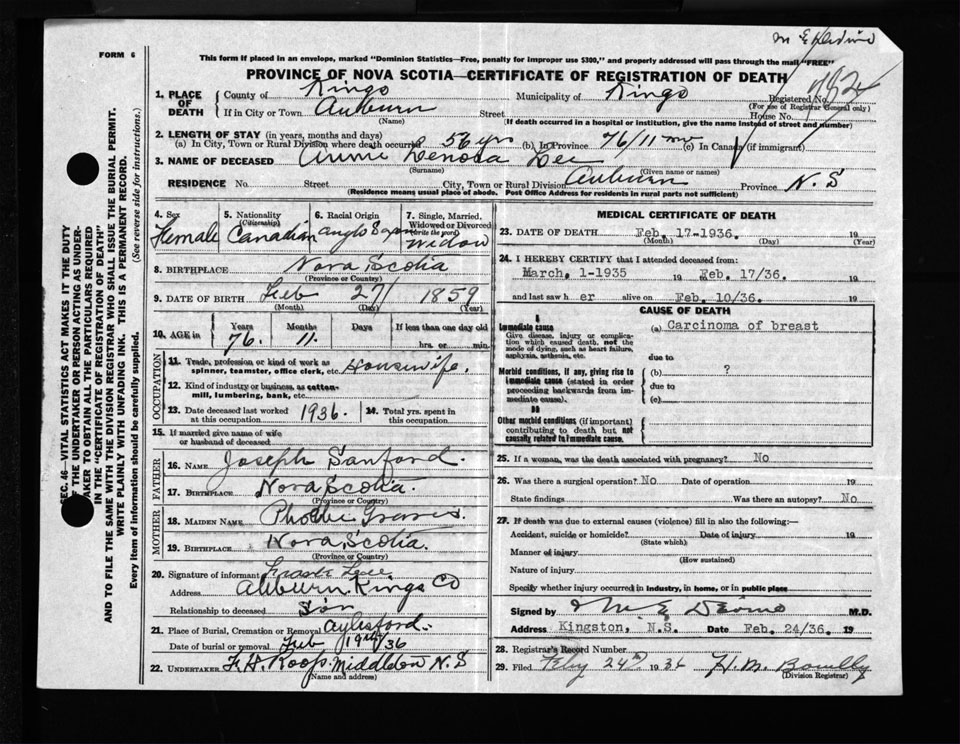 FORM 6
This form if placed in an envelope, marked "Dominion Statistics—Free, penalty for improper use $300," and properly addressed will pass through the mail "FREE"
PROVINCE OF NOVA SCOTIA—CERTIFICATE OF REGISTRATION OF DEATH
1. PLACE OF DEATH County of Kings Municipality of Kings Registered No. 792
(For use of Registrar General only)
If in City or Town Auburn Street House No.
(Name) (If death occurred in a hospital or institution, give the name instead of street and number)
2. LENGTH OF STAY (in years, months and days)
(a) In City, Town or Rural Division where death occurred 56 yrs (b) In Province 76/11 mo (c) In Canada (if immigrant)
3. NAME OF DECEASED Annie Lenora Lee
(Surname) (Given name or names)
RESIDENCE No. Street City, Town or Rural Division Auburn Province N.S
(Residence means usual place of abode. Post Office Address for residents in rural parts not sufficient)
4. Sex Female
5. Nationality (Citizenship) Canadian
6. Racial Origin Anglo Saxon
7. Single, Married, Widowed or Divorced (write the word) Widow
8. BIRTHPLACE Nova Scotia
(Province or Country)
9. DATE OF BIRTH Feb 27 1859
(Month) (Day) (Year)
10. AGE in Years Months Days If less than one day old
76. 11. hrs. or min.
OCCUPATION
11. Trade, profession or kind of work as spinner, teamster, office clerk, etc. Housewife.
12. Kind of industry or business, as cotton-mill, lumbering, bank, etc.
23. Date deceased last worked at this occupation 1936. 14. Total yrs. spent in this occupation
15. If married give name of wife or husband of deceased
FATHER
16. NAME Joseph Sanford.
17. BIRTHPLACE Nova Scotia.
(Province or Country)
MOTHER
18. MAIDEN NAME Phoebe Graves.
19. BIRTHPLACE Nova Scotia.
(Province or Country)
20. Signature of informant Frank Lee
Address Auburn Kings Co
Relationship to deceased Son
21. Place of Burial, Cremation or Removal Aylesford.
Date of burial or removal Feb 19th/36
22. UNDERTAKER F. H. Roop. Middleton N S
(Name and address)
MEDICAL CERTIFICATE OF DEATH
23. DATE OF DEATH Feb. 17-1936. 19
(Month) (Day) (Year)
24. I HEREBY CERTIFY that I attended deceased from:
March, 1-1935 19 to Feb. 17/36. 19
and last saw h er alive on Feb. 10/36. 19
CAUSE OF DEATH
I
Immediate cause (a) Carcinoma of breast
Give disease, injury or complication which caused death, not the mode of dying, such as heart failure, asphyxia, asthenia, etc.
due to
Morbid conditions, if any, giving rise to immediate cause (stated in order proceeding backwards from immediate cause).
(b) ?
due to
(c)
II
Other morbid conditions (if important) contributing to death but not causally related to immediate cause.
25. If a woman, was the death associated with pregnancy? No
26. Was there a surgical operation? No Date of operation 19
State findings Was there an autopsy? No
27. If death was due to external causes (violence) fill in also the following:—
Accident, suicide or homicide? Date of injury 19
(State which)
Manner of injury
(How sustained)
Nature of injury
Specify whether injury occurred in industry, in home, or in public place
Signed by M.D.
Address Kingston, N.S. Date Feb. 24/36. 19
28. Registrar's Record Number
29. Filed Feby 24th 1936 H. M.
(Division Registrar)
SEC. 46—VITAL STATISTICS ACT MAKES IT THE DUTY
OF THE UNDERTAKER OR PERSON ACTING AS UNDER-
TAKER TO OBTAIN ALL THE PARTICULARS REQUIRED
IN THE "CERTIFICATE OF REGISTRATION OF DEATH"
AND TO FILE THE SAME WITH THE DIVISION REGISTRAR WHO SHALL ISSUE THE BURIAL PERMIT.
WRITE PLAINLY WITH UNFADING INK. THIS IS A PERMANENT RECORD.
Every item of information should be carefully supplied. (See reverse side for instructions.)